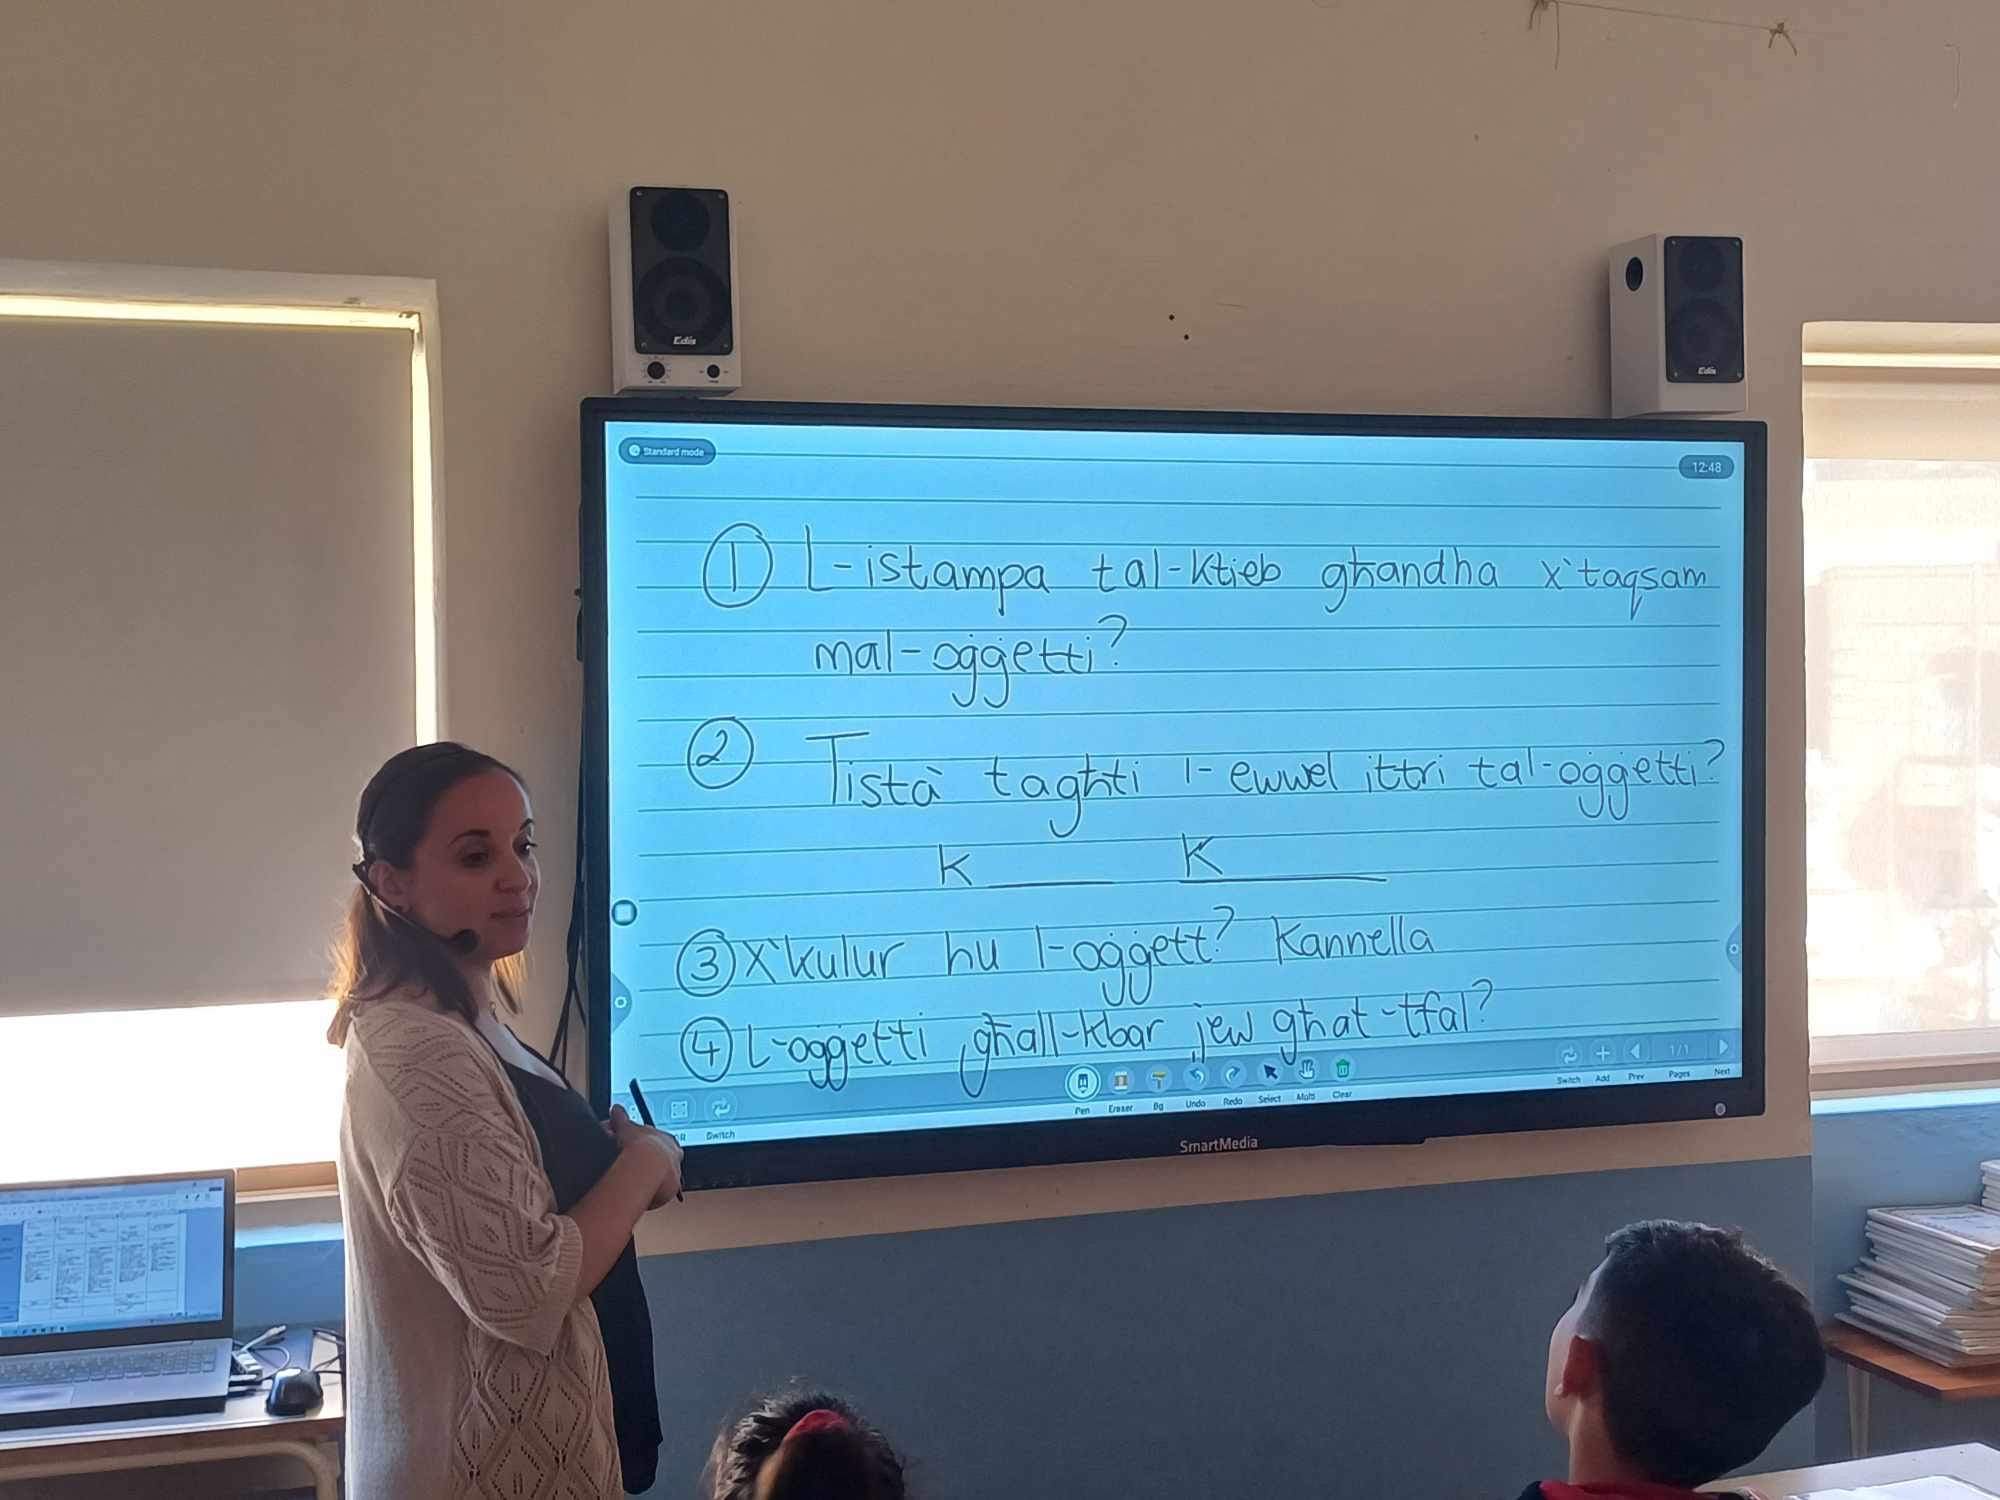 Edis
Edis
Standard mode
12:48
① L-istampa tal-ktieb għandha x'taqsam
mal-oġġetti?
② Tista' tagħti l-ewwel ittri tal-oġġetti?
K______ K______
③ X'kulur hu l-oġġett? Kannella
④ L-oġġetti għall-kbar jew għat-tfal?
Switch
Pen Eraser Bg Undo Redo Select Multi Clear
Switch Add Prev 1/1 Pages Next
SmartMedia